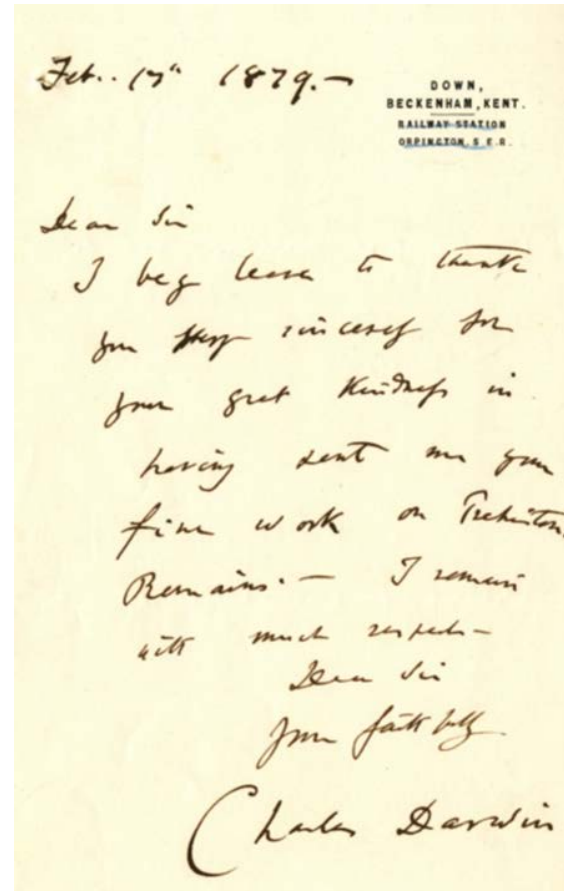 Feb. 17th 1879.—
DOWN,
BECKENHAM, KENT.
RAILWAY STATION
ORPINGTON, S. E. R.
Dear Sir
I beg leave to thank
you very sincerely for
your great kindness in
having sent me your
fine work on Prehistor
Remains.— I remain
with much respect—
Dear Sir
Yours faithfully
Charles Darwin